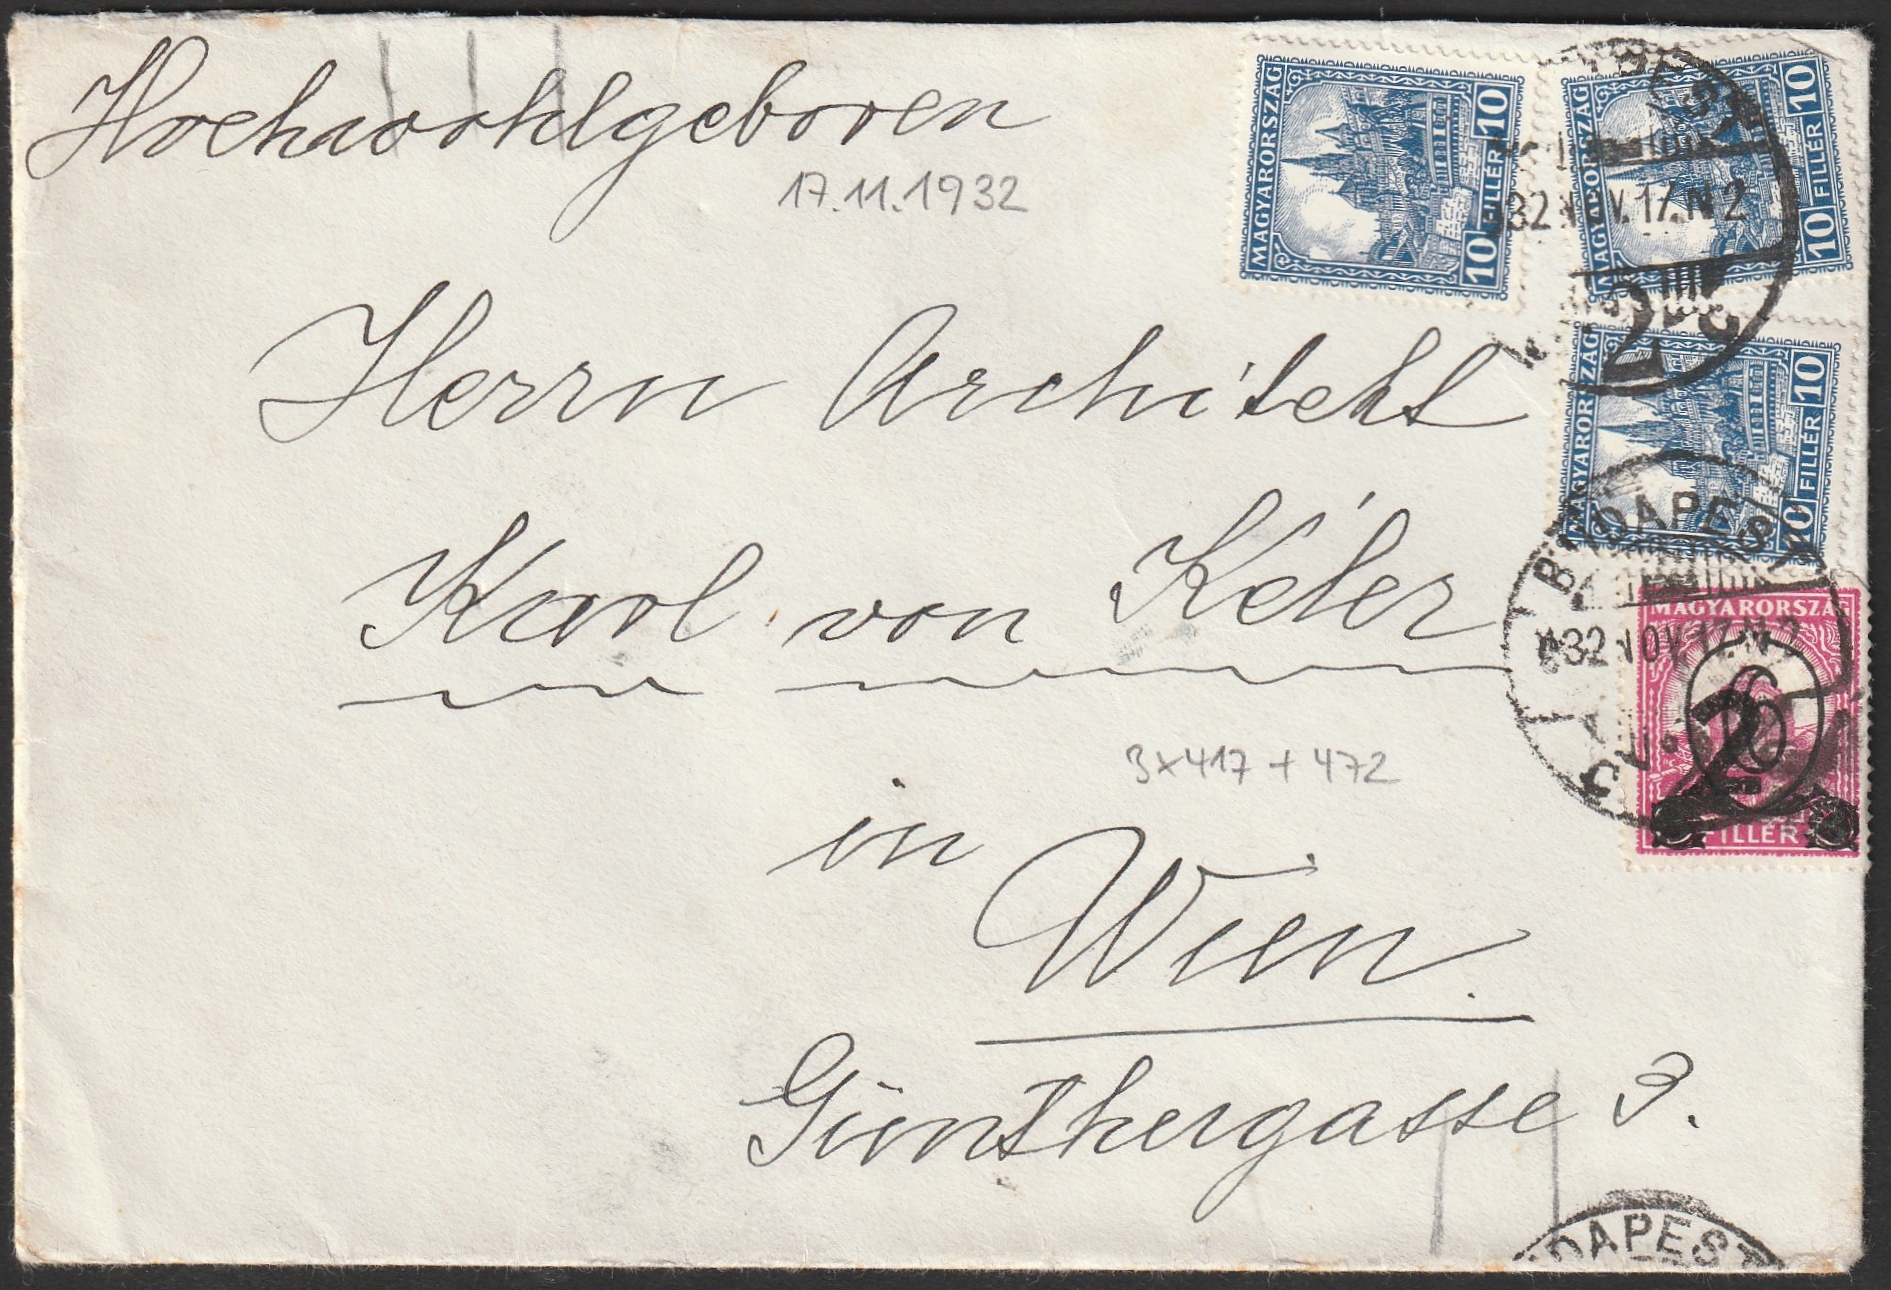 Hochwohlgeboren
17.11.1932
MAGYARORSZÁG
10 FILLÉR 10
MAGYARORSZÁG
10 FILLÉR 10
932 NOV. 17. N 2
2
MAGYARORSZÁG
10 FILLÉR 10
Herrn Architekt
Karl von Kéler
BUDAPEST
932 NOV. 17. N
MAGYARORSZÁG
2
FILLÉR
3x417 + 472
in
Wien.
Günthergasse 3.
BUDAPEST